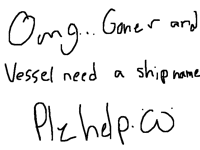 Omg... Goner and
Vessel need a ship name
Plz help. ω